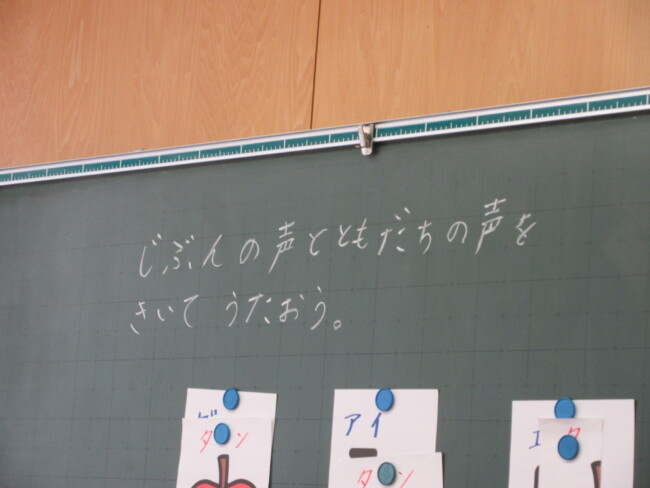 じぶんの声とともだちの声を
きいて うたおう。
タン
アイ
タン